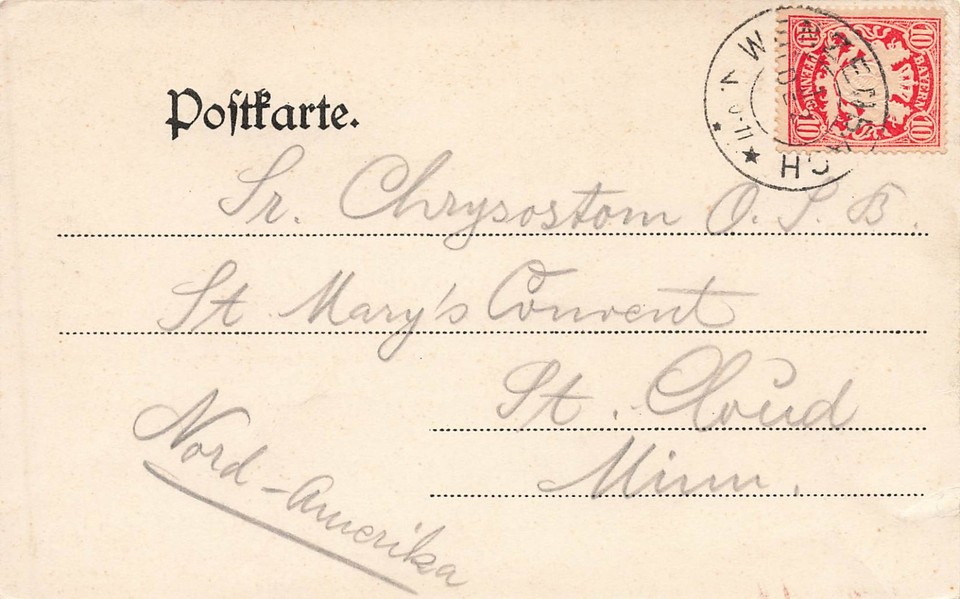 Postkarte.
10 10 10 10
BAYERN
Sr. Chrysostom O. S. B.
St Mary's Convent
St. Cloud
Minn.
Nord-Amerika